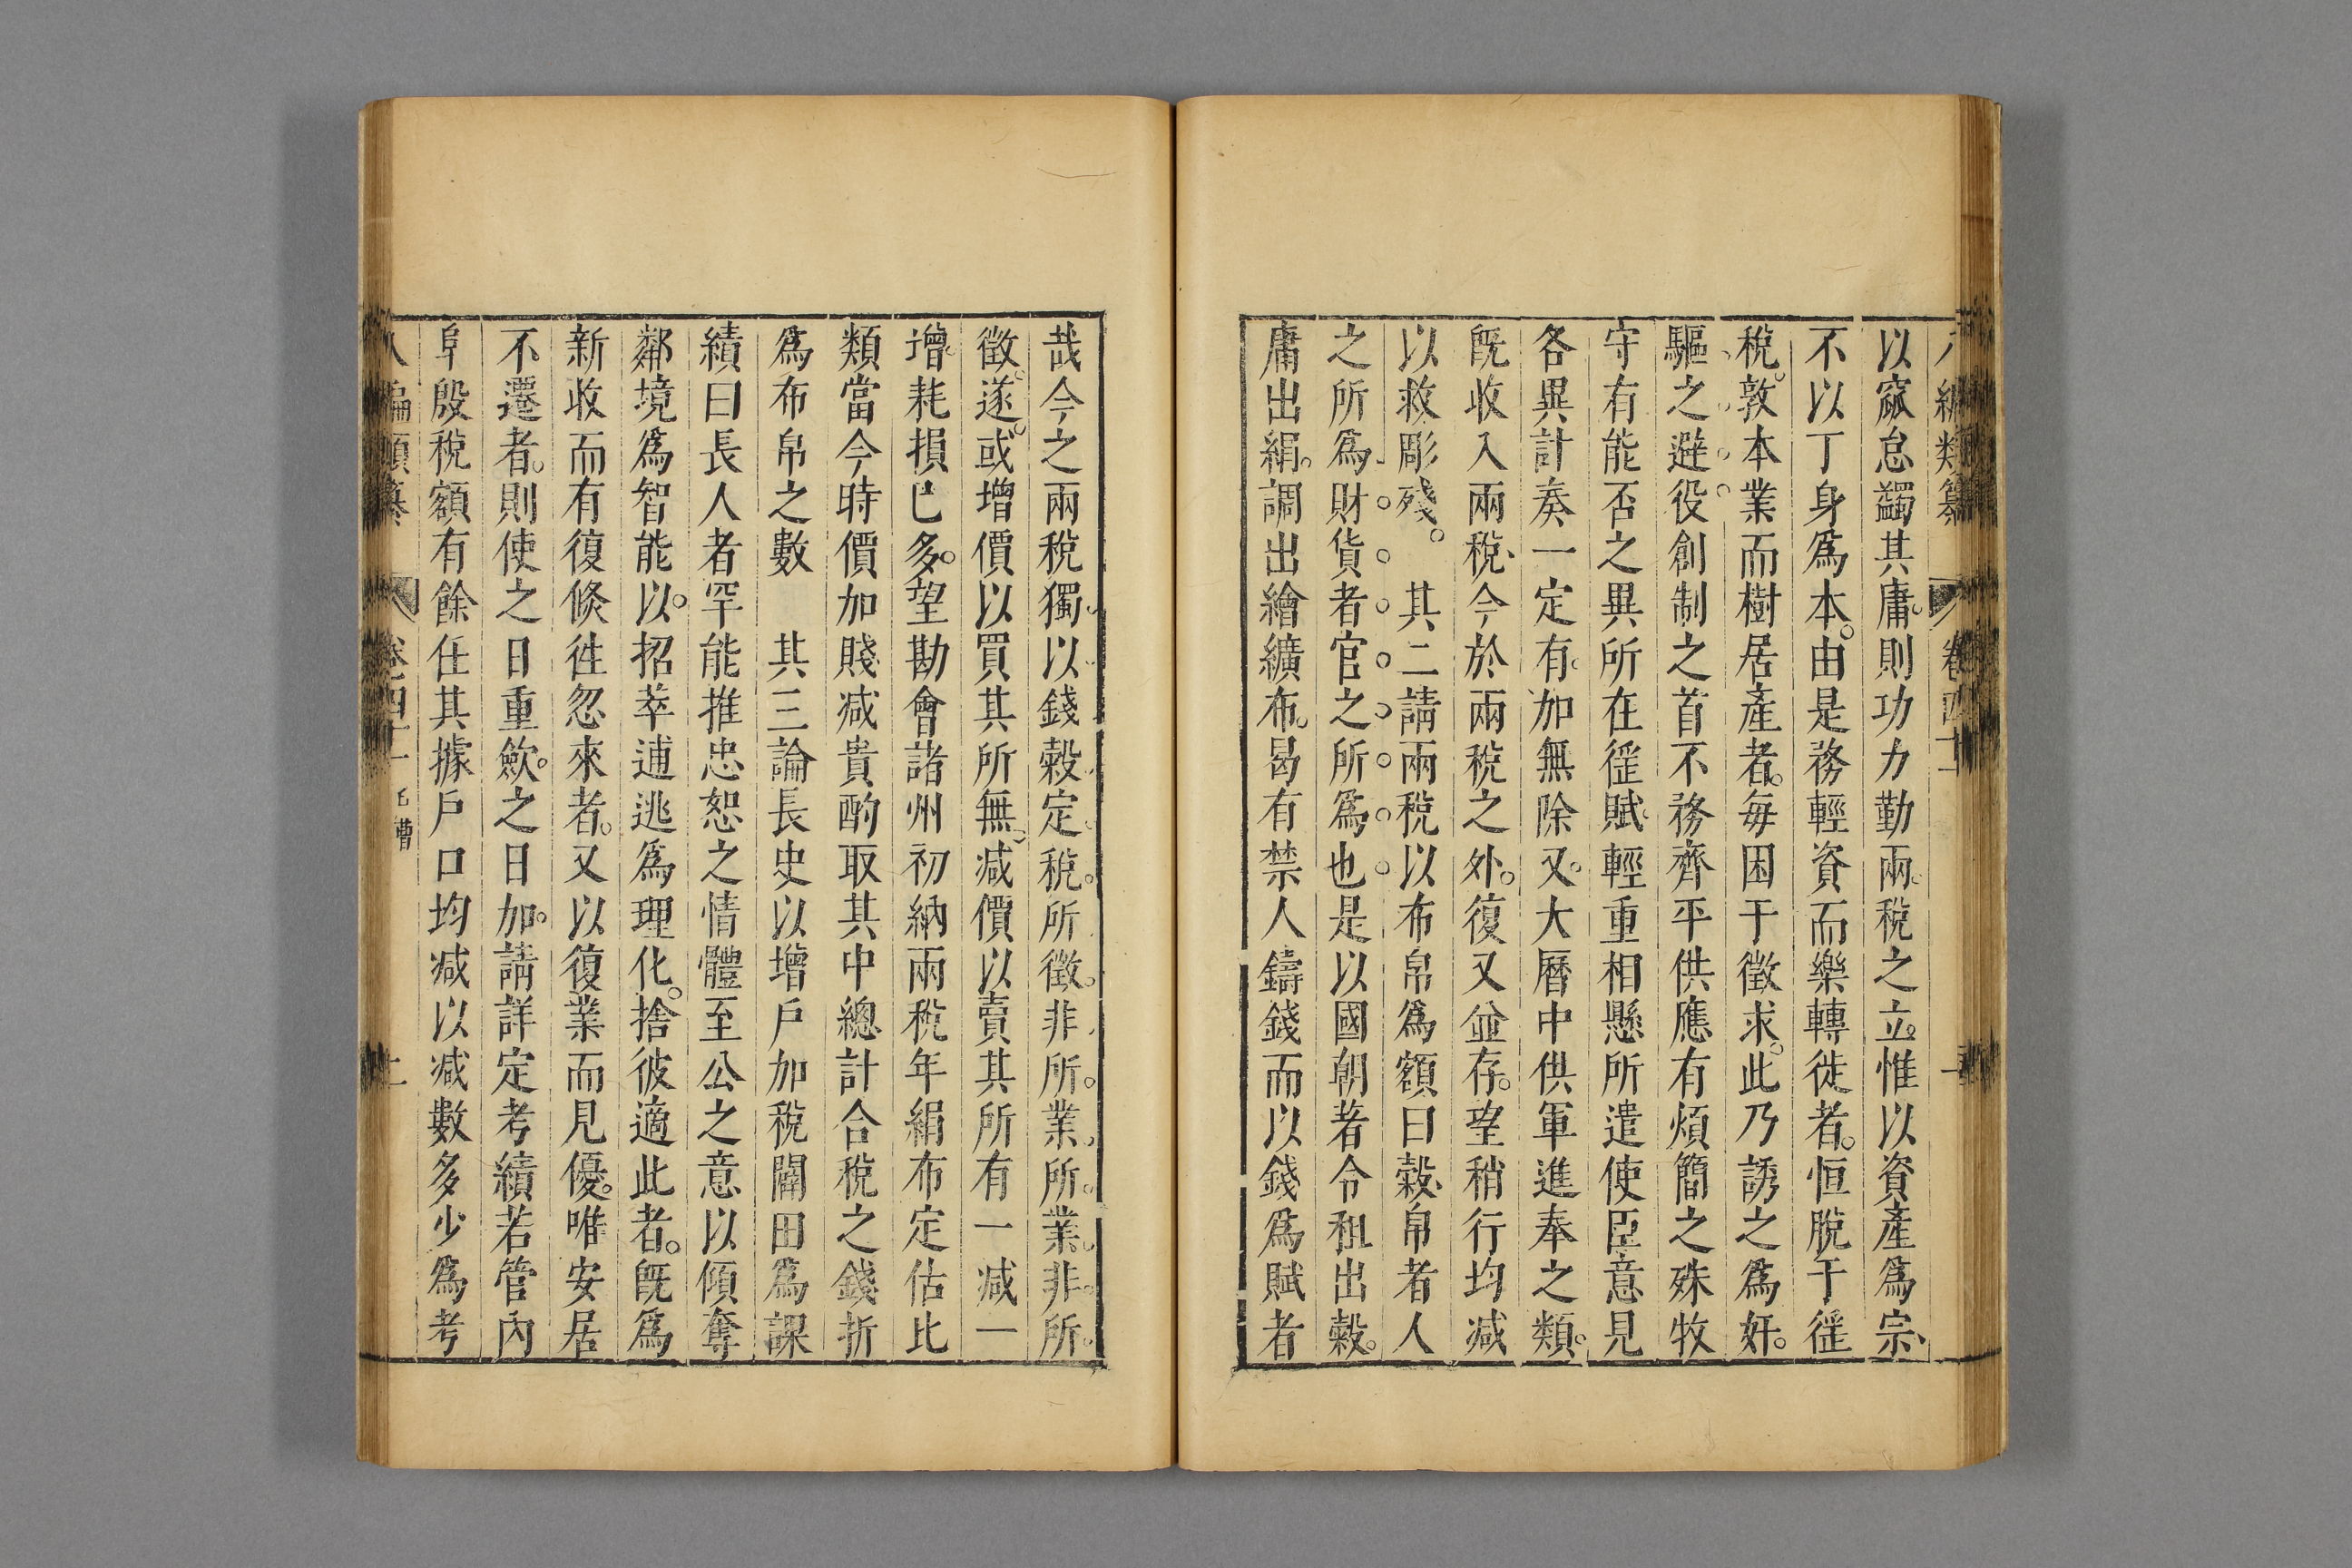 編類纂 卷四十一
以窳怠蠲其庸則功力勤兩稅之立惟以資產爲宗
不以丁身爲本由是務輕資而樂轉徙者恒脫于徭
稅敦本業而樹居產者每困于徵求此乃誘之爲奸
驅之避役創制之首不務齊平供應有煩簡之殊牧
守有能否之異所在徭賦輕重相懸所遣使臣意見
各異計奏一定有加無除又大曆中供軍進奉之類
旣收入兩稅今於兩稅之外復又並存望稍行均减
以救彫殘。 其二請兩稅以布帛爲額曰穀帛者人
之所爲財貨者官之所爲也是以國朝著令租出穀
庸出絹調出繒纊布曷有禁人鑄錢而以錢爲賦者
哉今之兩稅獨以錢穀定稅所徵非所業所業非所
徵遂或增價以買其所無减價以賣其所有一减一
增耗損已多望勘會諸州初納兩稅年絹布定估比
類當今時價加賤减貴酌取其中總計合稅之錢折
爲布帛之數 其三論長史以增戶加稅闢田爲課
績曰長人者罕能推忠恕之情體至公之意以傾奪
鄰境爲智能以招萃逋逃爲理化捨彼適此者旣爲
新收而有復倏徃忽來者又以復業而見優唯安居
不遷者則使之日重歛之日加請詳定考績若管內
阜殷稅額有餘任其據戶口均减以减數多少爲考
八編類纂 卷四十一 屯漕 十一